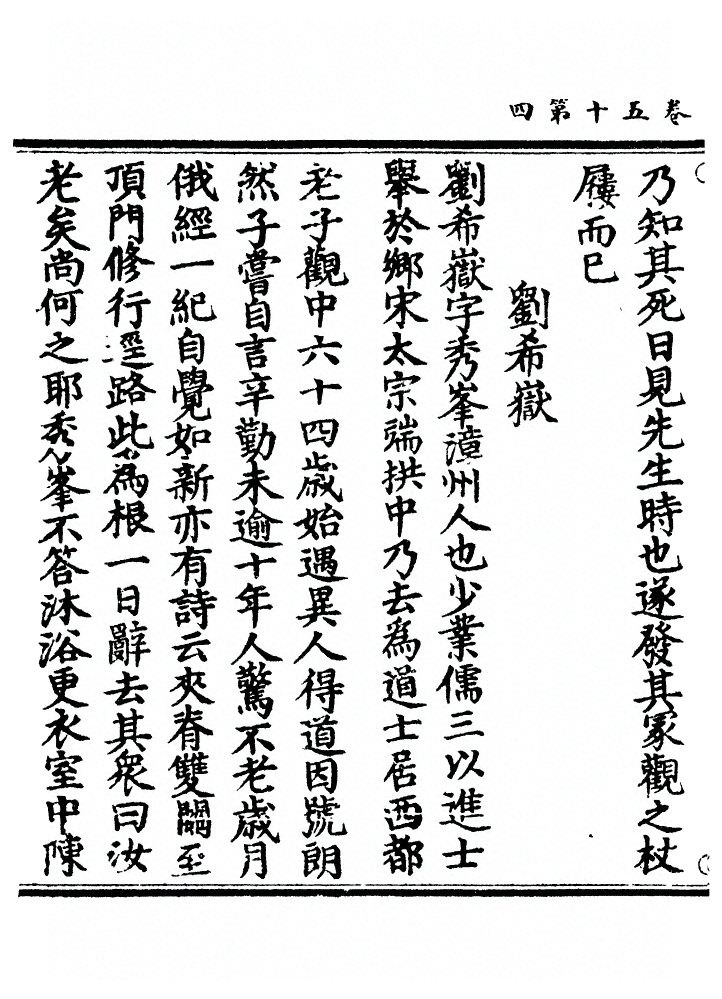 卷五十第四
乃知其死日見先生時也遂發其冢觀之杖
屨而已
劉希嶽
劉希嶽字秀峯漳州人也少業儒三以進士
舉於鄉宋太宗端拱中乃去爲道士居西都
老子觀中六十四歲始遇異人得道因號朗
然子嘗自言辛勤未逾十年人驚不老歲月
俄經一紀自覺如新亦有詩云夾脊雙關至
頂門修行逕路此爲根一日辭去其衆曰汝
老矣尚何之耶秀峯不答沐浴更衣室中陳